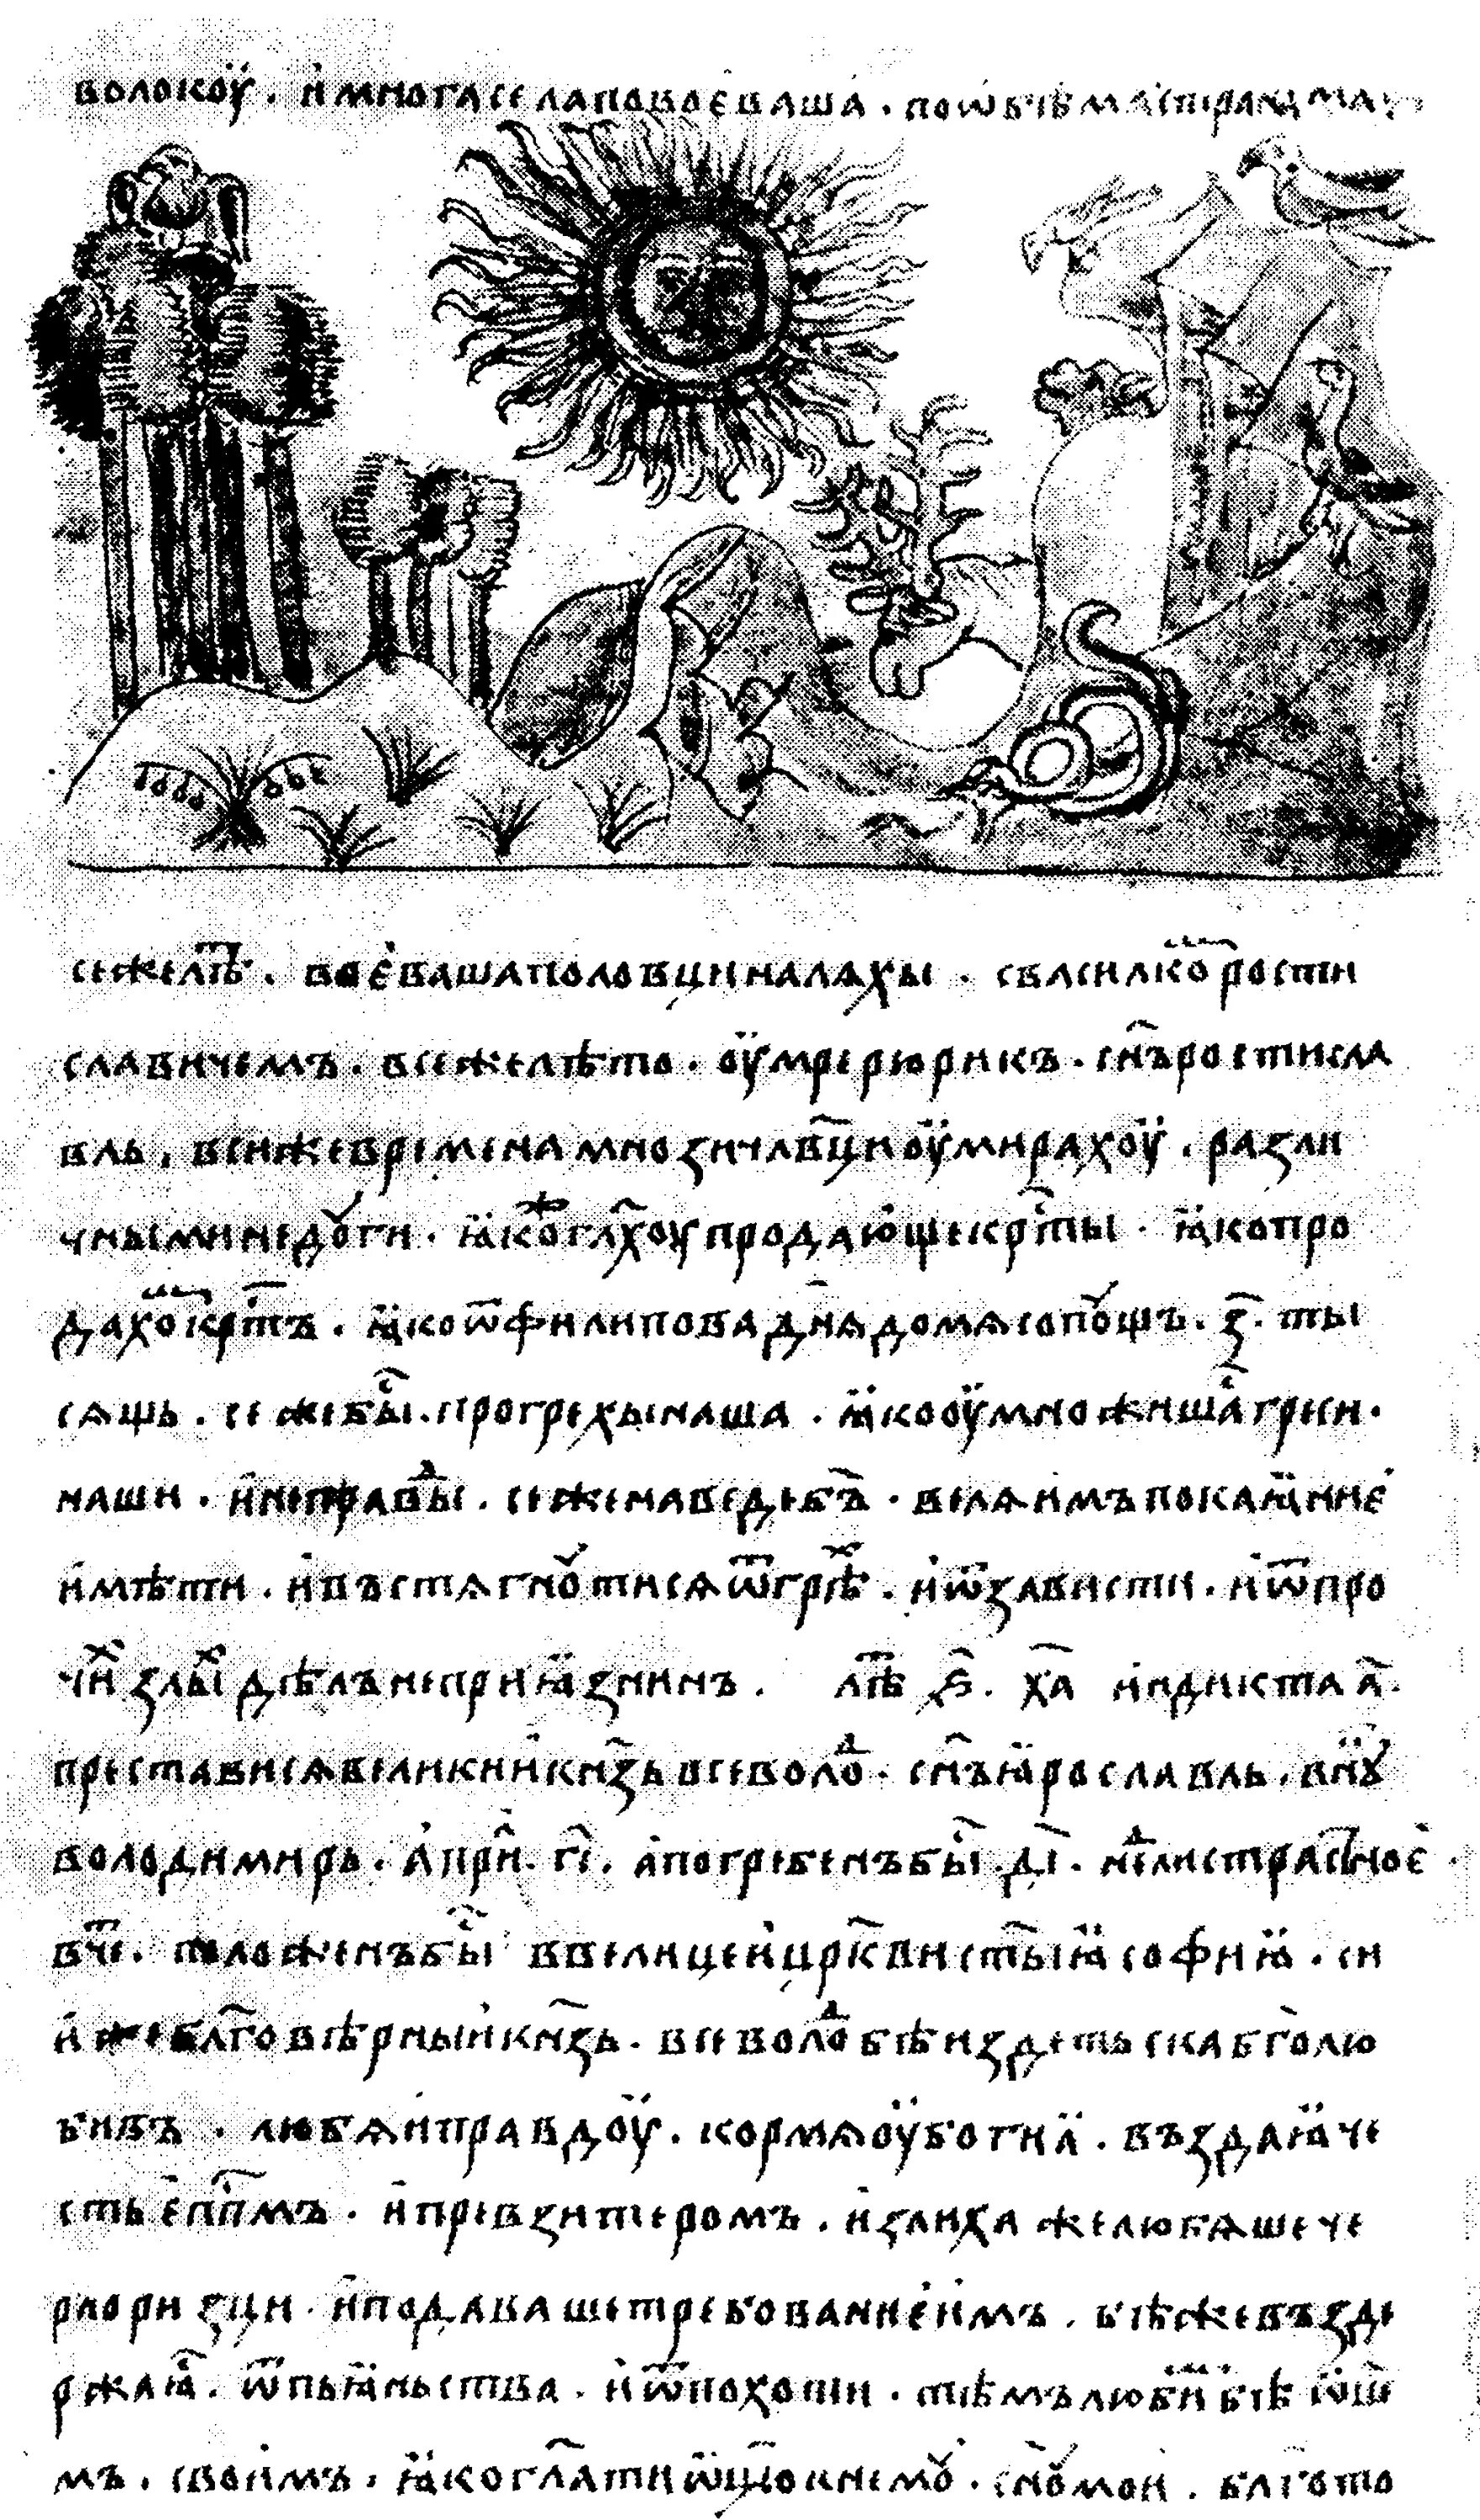 волокоу҄ . и҆ многа села повое҆ваша . по ѡбѣма странама
се же лѣт҇ . вое҆ваша половци на лѧхы . с василко҇мъ рости
славичемъ . в се же лѣто . оу҆мре рюрикъ . сн҃ъ ростисла
вль . в си же времена мнози чл҃вци оу҆мирахоу҄ . разли
чными недоугы . ꙗ҆ко ж гл҃хоу продающе крⷭ҇ты . ꙗ҆ко про
дахоⷨ крⷭ҇тъ . ꙗ҆ко ѿ филипова дн҃ѧ до мѧсопоущъ . з҃ . ты
сѧщь . се же быⷭ҇ . про грехы наша . ꙗ҆ко оу҆множишаⷭ҇ греси .
наши . и҆ неправⷣы . се же наведе б҃ъ . велѧ и҆мъ покаꙗ҆ние҆
и҆мѣти . и҆ въстѧгноути сѧ ѿ грѣⷯ . и҆ ѿ зависти . и҆ ѿ про
чиⷯ злыⷯ дѣлъ неприꙗ҆знинъ . лѣт҇ ҂ѕ҃ . х҃а индикта а҃ .
престависѧ великии҆ кнѧз҃ь всеволоⷣ . сн҃ъ ꙗ҆рославль . вноу҃
володимирь . а҆при҇ . г҃і . а҆ погребенъ быⷭ҇ . д҃і . нⷣели страстное҆ .
в че҇ . положенъ быⷭ҇ в велицеи҆ цр҃кви ст҃ыꙗ҆ софиꙗ҆ . си
и҆же бл҃говѣрныи҆ кнѧз҃ь . всеволоⷣ бѣ издетьска бг҃олю
бивъ . любѧ и҆ правдоу҄ . кормѧ оу҆богиꙗ҆ . въздаꙗ҆ че
сть е҆пⷭ҇пмъ . и҆ превзитеромъ . и҆злиха же любѧше че
рноризци . и҆ подаваше требование҆ и҆мъ . бѣ же възде
ржаꙗ҆ⷭ҇ . ѿ пьꙗ҆ньства . и҆ ѿ похоти . тѣмъ любиⷨ бѣ ѿц҃е
мъ . своимъ . ꙗ҆ко гл҃ати ѿц҃ю к немоу . сн҃оу мои . бл҃го то